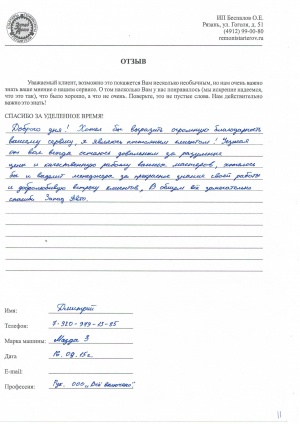 ИП Беспалов О.Е.
Рязань, ул. Гоголя, д. 51
(4912) 99-00-80
remontstarterov.ru
ОТЗЫВ
Уважаемый клиент, возможно это покажется Вам несколько необычным, но нам очень важно
знать ваше мнение о нашем сервисе. О том насколько Вам у нас понравилось (мы искренне надеемся,
что это так), что было хорошо, а что не очень. Поверьте, это не пустые слова. Нам действительно
важно это знать!
СПАСИБО ЗА УДЕЛЕННОЕ ВРЕМЯ!
Доброго дня! Хотел бы выразить огромную благодарность
вашему сервису, я являюсь постоянным клиентом! Уезжая
от вас всегда остаюсь довольным за разумные
цены и качественную работу ваших мастеров, хотелось
бы и выделить менеджера за прекрасное знание своей работы
и доброжелательную встречу клиентов. В общем всё замечательно
спасибо
Имя: Дмитрий
Телефон:
Марка машины: Мазда 3
Дата 16.09.15г.
E-mail:
Профессия: Рук. ООО "Всё включено"
11